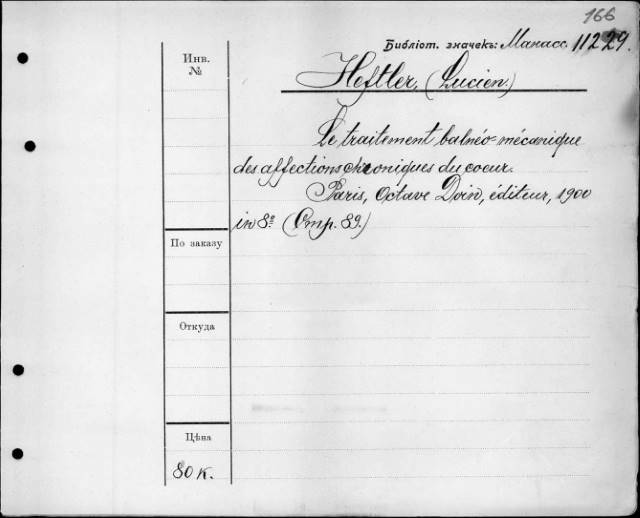 166
Библіот. значекъ: Манасс. 11229.
Инв.
№
Heftler, (Lucien.)
Le traitement balnéo-mécanique
des affections chroniques du coeur.
Paris, Octave Doin, éditeur, 1900
in 8º (Стр. 89.)
По заказу
Откуда
Цѣна
80 к.